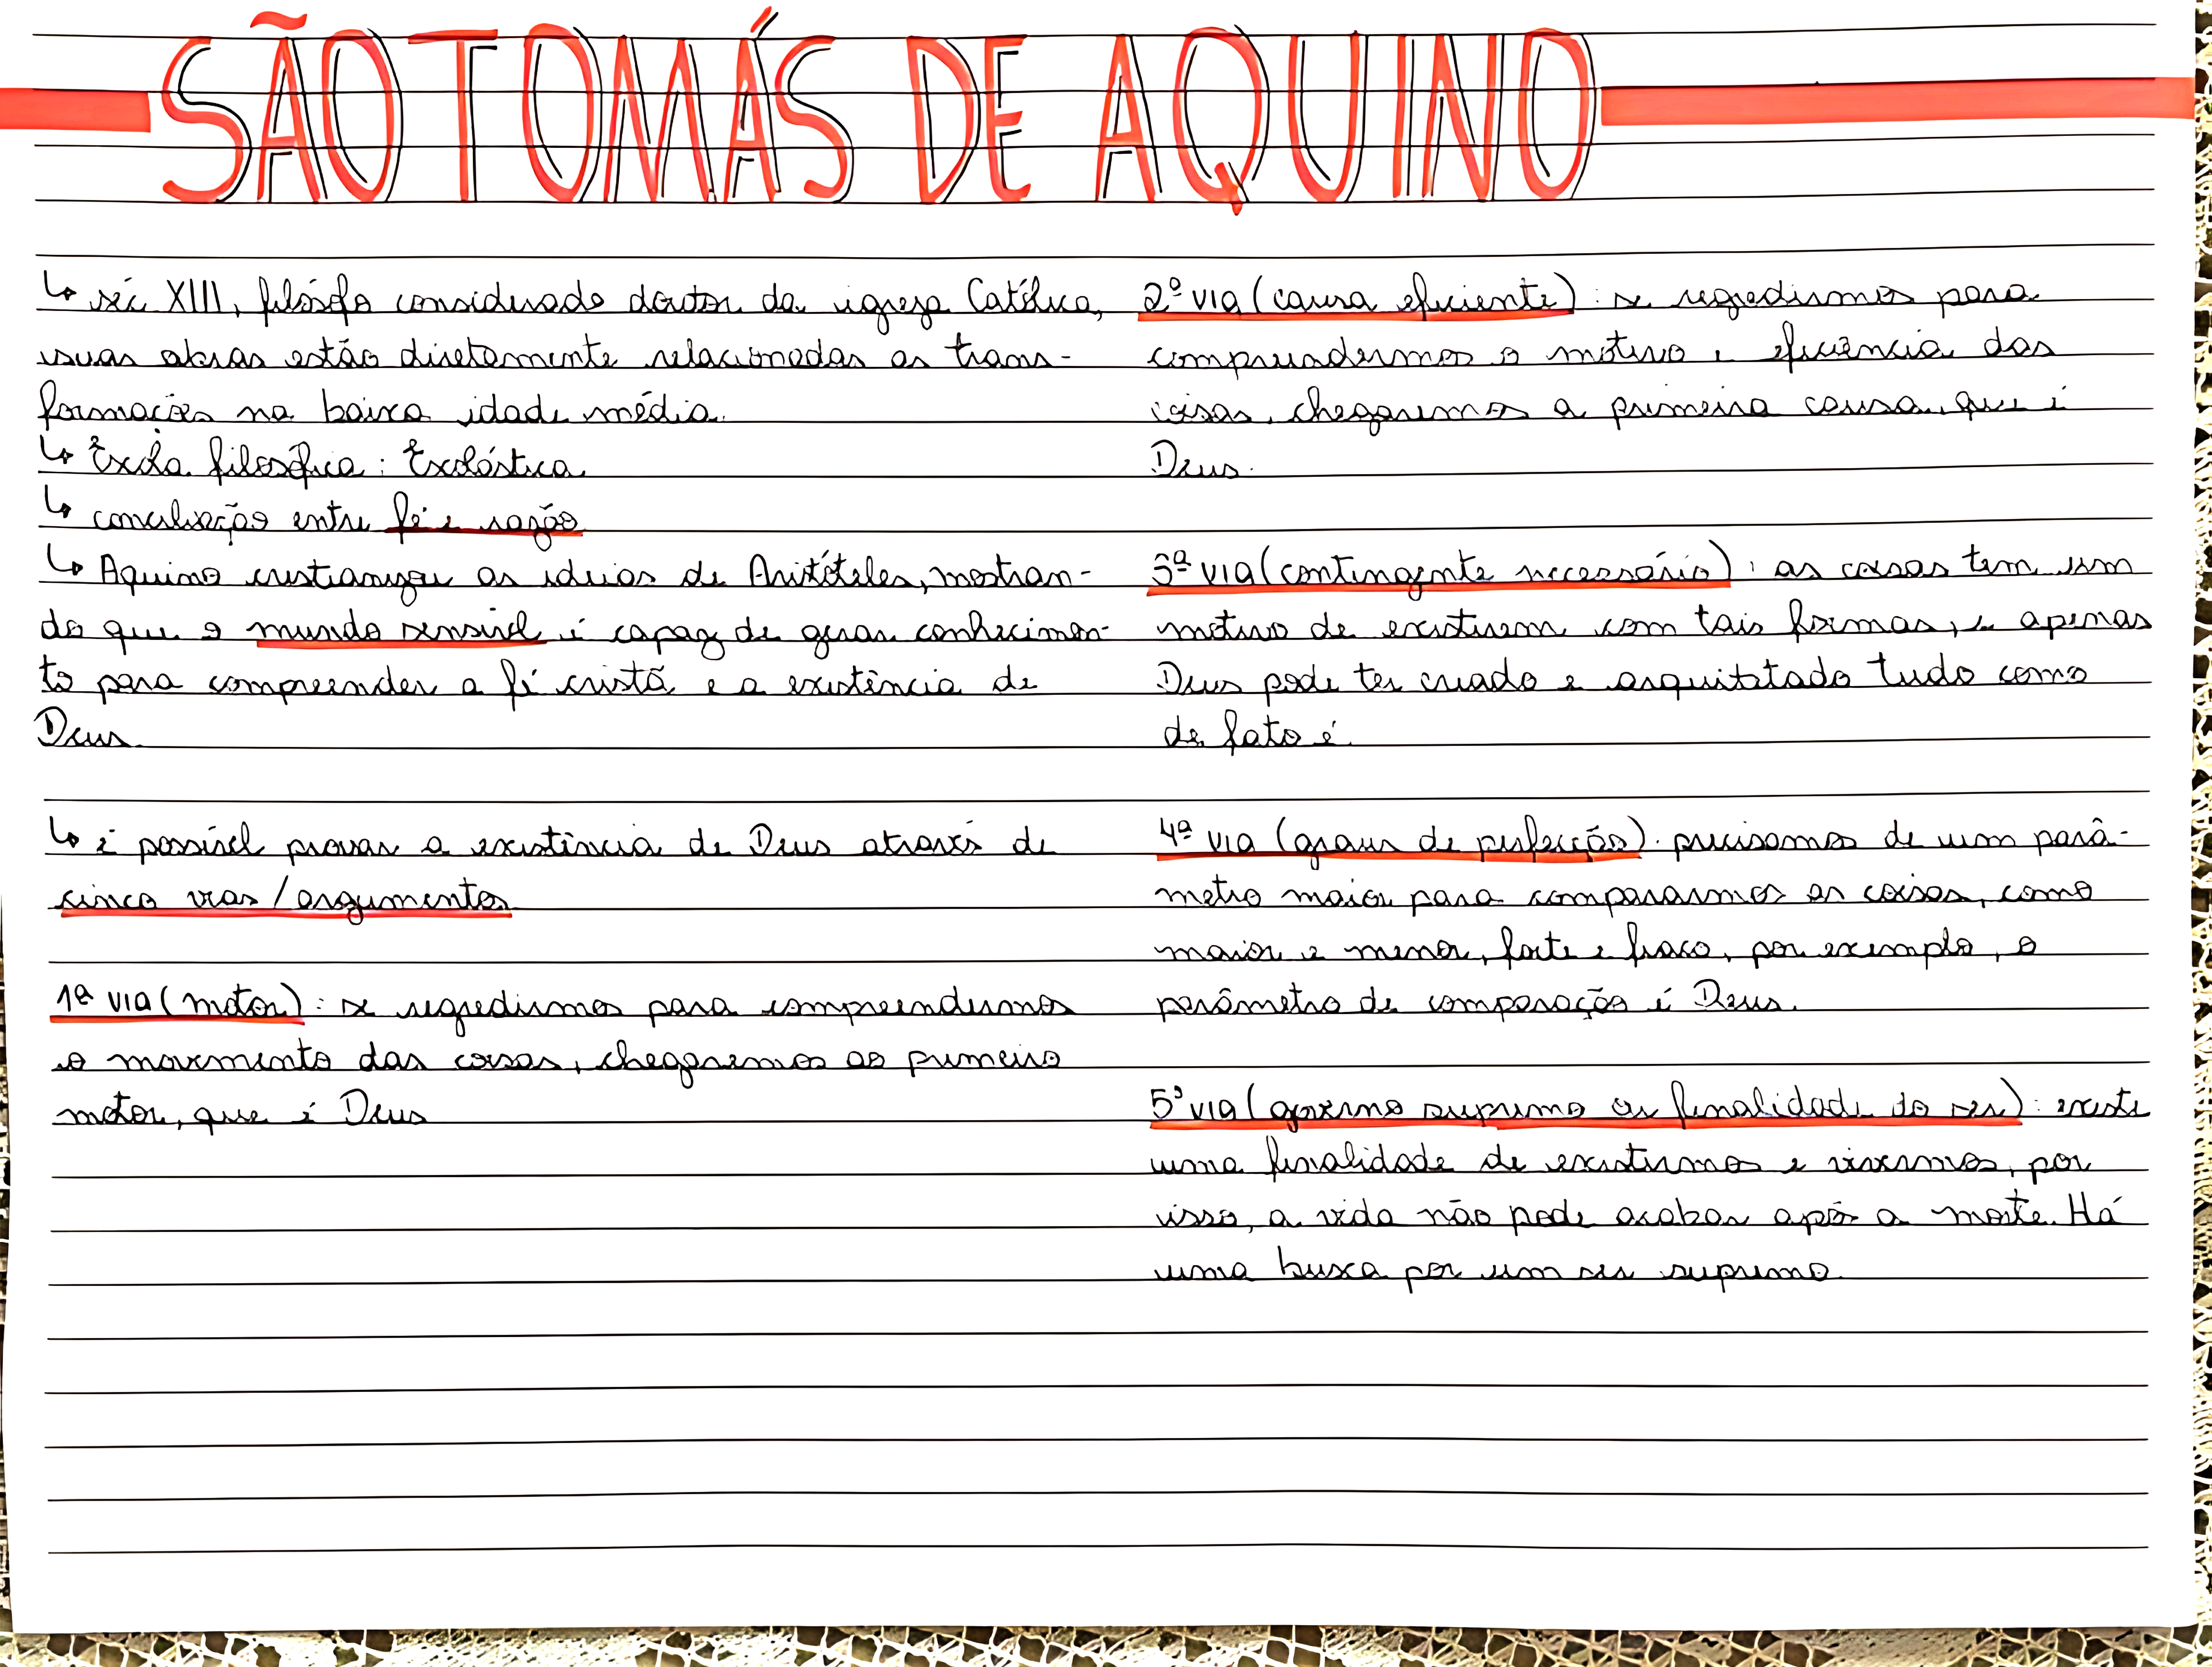 SÃO TOMÁS DE AQUINO
↳ séc XIII, filósofo considerado doutor da igreja Católica,
suas obras estão diretamente relacionadas as trans-
formações na baixa idade média.
↳ Escola filosófica: Escolástica
↳ conciliação entre fé e razão
↳ Aquino cristianizou as ideias de Aristóteles, mostran-
do que o mundo sensível é capaz de gerar conhecimen-
to para compreender a fé cristã e a existência de
Deus.
↳ é possível provar a existência de Deus através de
cinco vias/argumentos
1ª via (motor): se regredirmos para compreendermos
o movimento das coisas, chegaremos ao primeiro
motor, que é Deus
2ª via (causa eficiente): se regredirmos para
compreendermos o motivo e eficiência das
coisas, chegaremos a primeira causa, que é
Deus.
3ª via (contingente necessário): as coisas tem um
motivo de existirem com tais formas, e apenas
Deus pode ter criado e arquitetado tudo como
de fato é.
4ª via (graus de perfeição): precisamos de um parâ-
metro maior para compararmos as coisas, como
maior e menor, forte e fraco, por exemplo, o
parâmetro de comparação é Deus.
5ª via (governo supremo ou finalidade do ser): existe
uma finalidade de existirmos e vivermos, por
isso, a vida não pode acabar após a morte. Há
uma busca por um ser supremo.